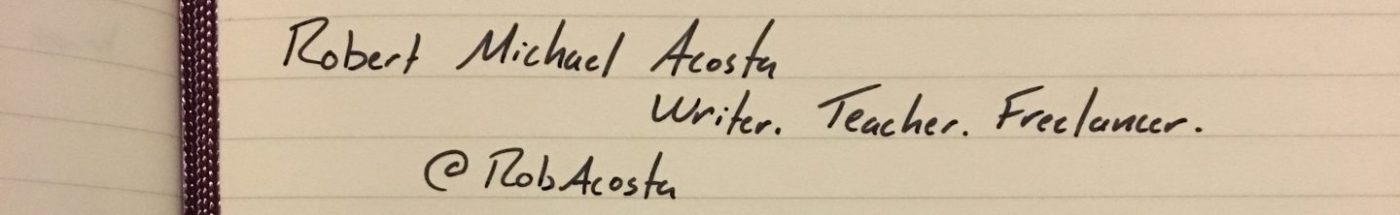 Robert Michael Acosta
Writer. Teacher. Freelancer.
@RobAcosta